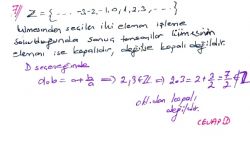 7) Z = {... -3,-2,-1,0,1,2,3, ...}
kümesinden seçilen iki eleman işleme
sokulduğunda sonuç tamsayılar kümesinin
elemanı ise kapalıdır, değilse kapalı değildir.
D seçeneğinde
a∆b = a + b/a ⟹ 2,3∈Z ⟹ 2∆3 = 2 + 3/2 = 7/2 ∉ Z
old.dan kapalı
değildir.
CEVAP D